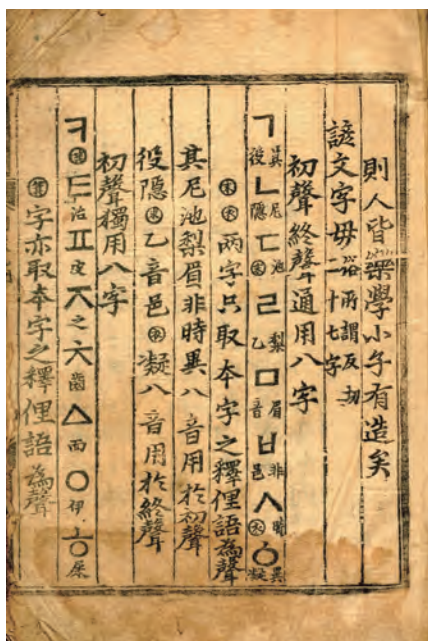 則人皆樂學小子有造矣
諺文字母俗所謂反切二十七字
初聲終聲通用八字
ㄱ其役ㄴ尼隱ㄷ池末ㄹ梨乙ㅁ眉音ㅂ非邑ㅅ時衣ㆁ異凝
末衣兩字只取本字之釋俚語為聲
其尼池梨眉非時異八音用於初聲
役隱末乙音邑衣凝八音用於終聲
初聲獨用八字
ㅋ箕ㅌ治ㅍ皮ㅈ之ㅊ齒ㅿ而ㅇ伊ㅎ屎
箕字亦取本字之釋俚語為聲